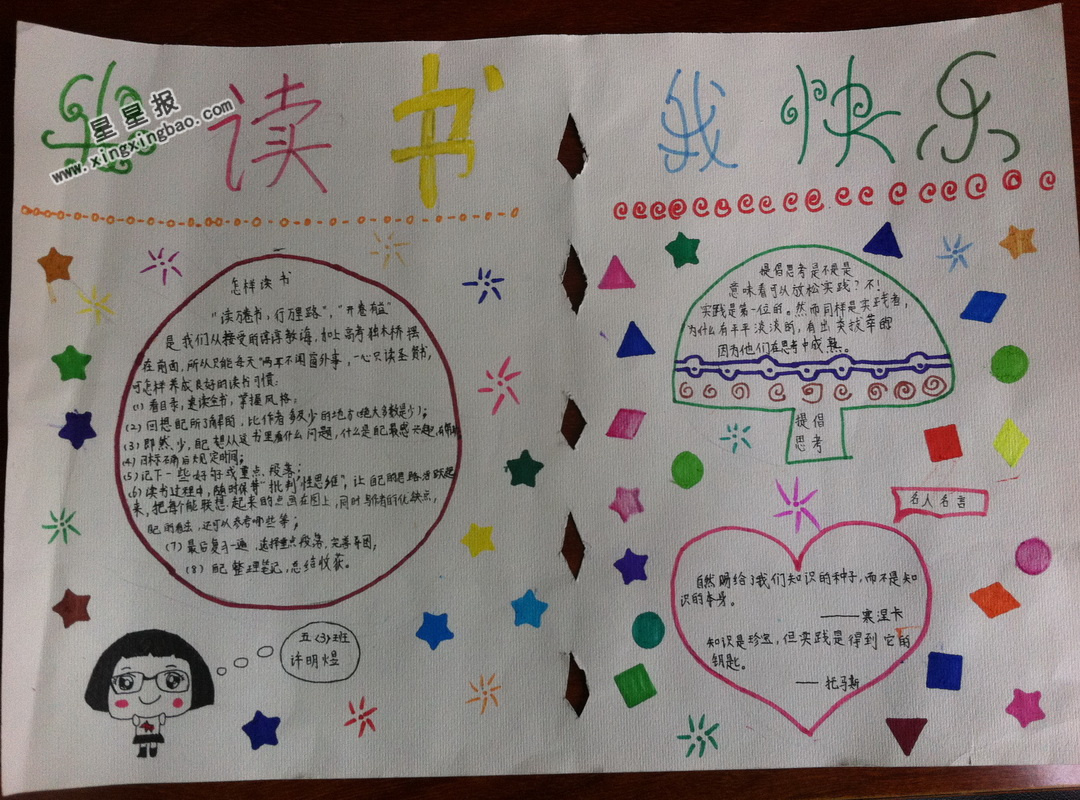 我读书
星星报
www.xingxingbao.com
我快乐
怎样读书
"读万卷书，行万里路"，"开卷有益"
是我们从接受的谆谆教诲，
在前面，所以只能每天"两耳不闻窗外事，一心只读圣贤书，
可怎样养成良好的读书习惯：
(1) 看目录，速读全书，掌握风格；
(2) 回想 所了解的，比作者多及少的地方（绝大多数是少）；
(3) 即然少， 想从这书里看什么问题，什么是 最感兴趣，
(4) 目标确后规定时间；
(5) 记下一些好句或重点段落；
(6) 读书过程中，随时保骨"批判"性思维"，让 的思路活跃起
来，把每个能联想起来的点画在图上，同时与作者的优缺点，
的看法，还可以参考哪些等；
(7) 最后复习一遍，选择重点段落，完善草图，
(8) 整理笔记，总结收获。
五(3)班
许明煜
提倡思考是不是是
意味着可以放松实践？不！
实践是第一位的。然而同样是实践者，
为什么有平平淡淡的，有出类拔萃的
因为他们在思考中成熟。
提倡
思考
名人名言
自然赐给了我们知识的种子，而不是知
识的本身。
——塞涅卡
知识是珍宝，但实践是得到它的
钥匙。
——托马斯